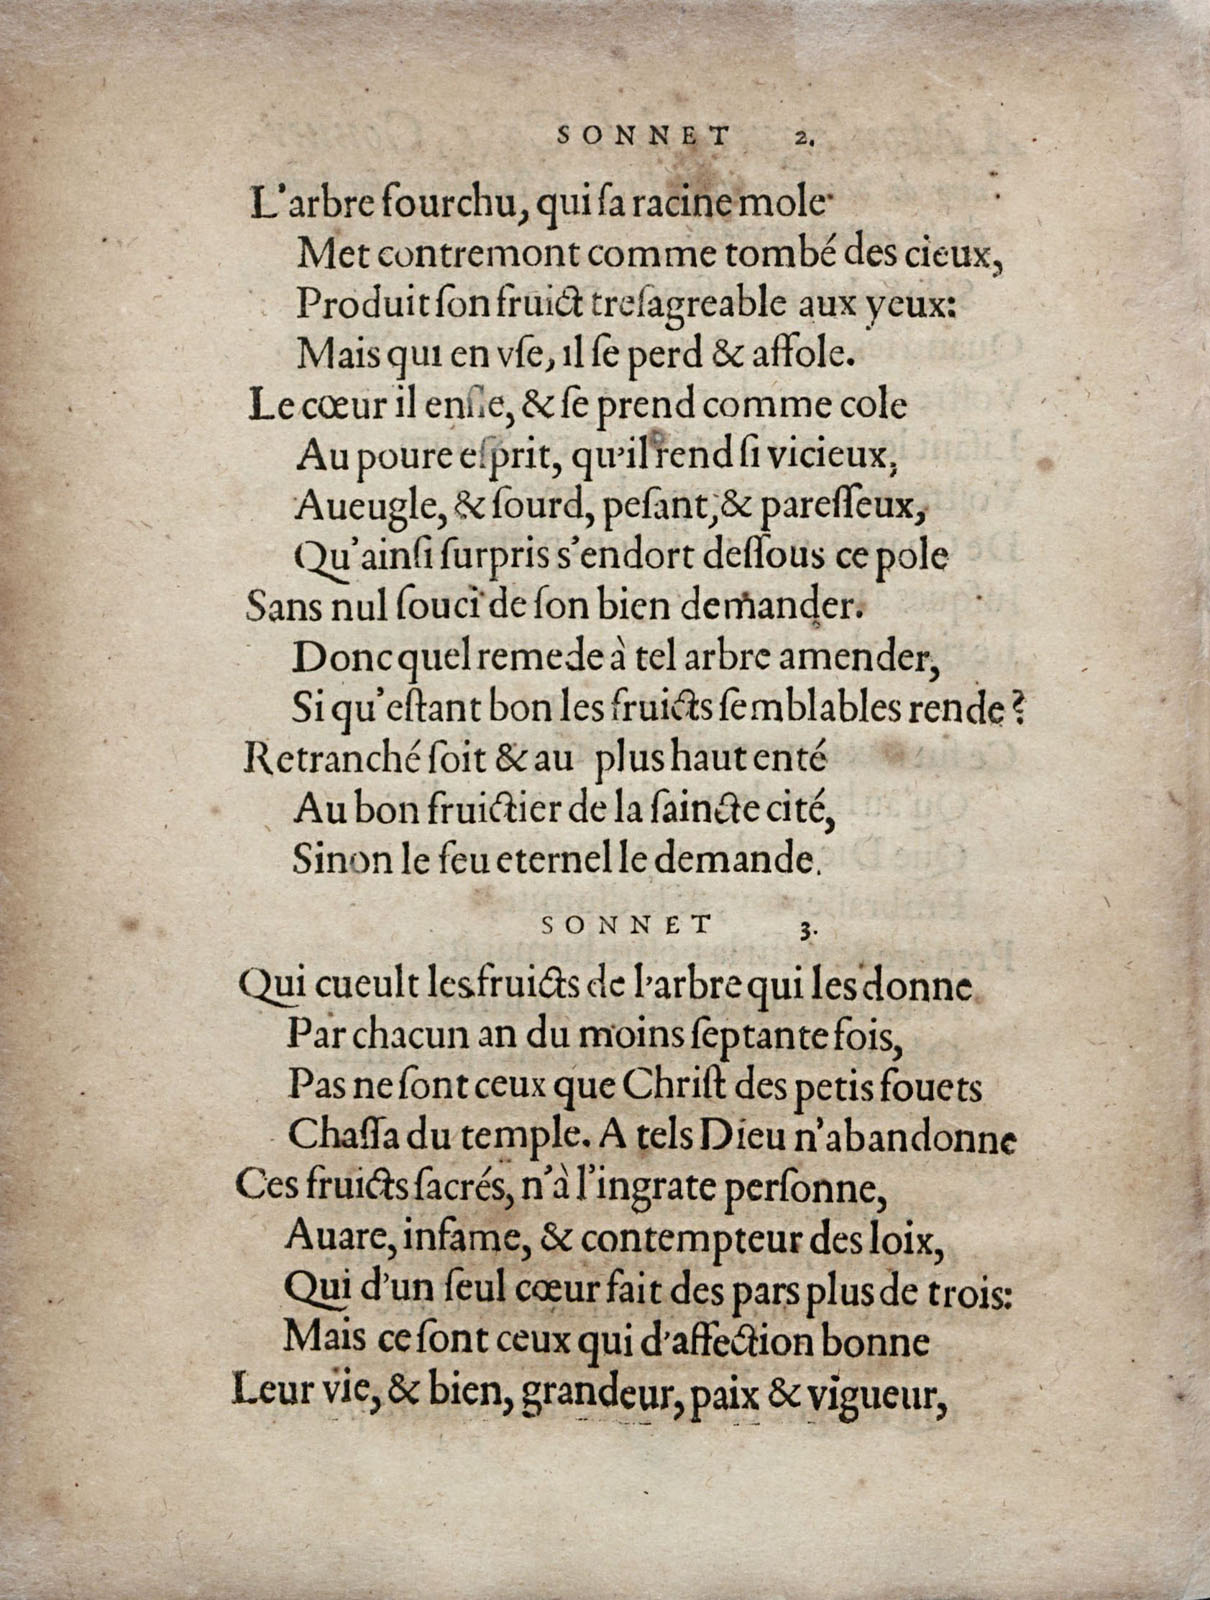 SONNET 2.
L'arbre fourchu, qui ſa racine mole
Met contremont comme tombé des cieux,
Produit ſon fruict treſagreable aux yeux:
Mais qui en vſe, il ſe perd & affole.
Le cœur il enfle, & ſe prend comme cole
Au poure eſprit, qu'il rend ſi vicieux,
Aueugle, & ſourd, peſant, & pareſſeux,
Qu'ainſi ſurpris s'endort deſſous ce pole
Sans nul ſouci de ſon bien demander.
Donc quel remede à tel arbre amender,
Si qu'eſtant bon les fruicts ſemblables rende?
Retranché ſoit & au plus haut enté
Au bon fruictier de la ſaincte cité,
Sinon le feu eternel le demande.
SONNET 3.
Qui cueult les fruicts de l'arbre qui les donne
Par chacun an du moins ſeptante fois,
Pas ne ſont ceux que Chriſt des petis fouets
Chaſſa du temple. A tels Dieu n'abandonne
Ces fruicts ſacrés, n'à l'ingrate perſonne,
Auare, infame, & contempteur des loix,
Qui d'un ſeul cœur fait des pars plus de trois:
Mais ce ſont ceux qui d'affection bonne
Leur vie, & bien, grandeur, paix & vigueur,